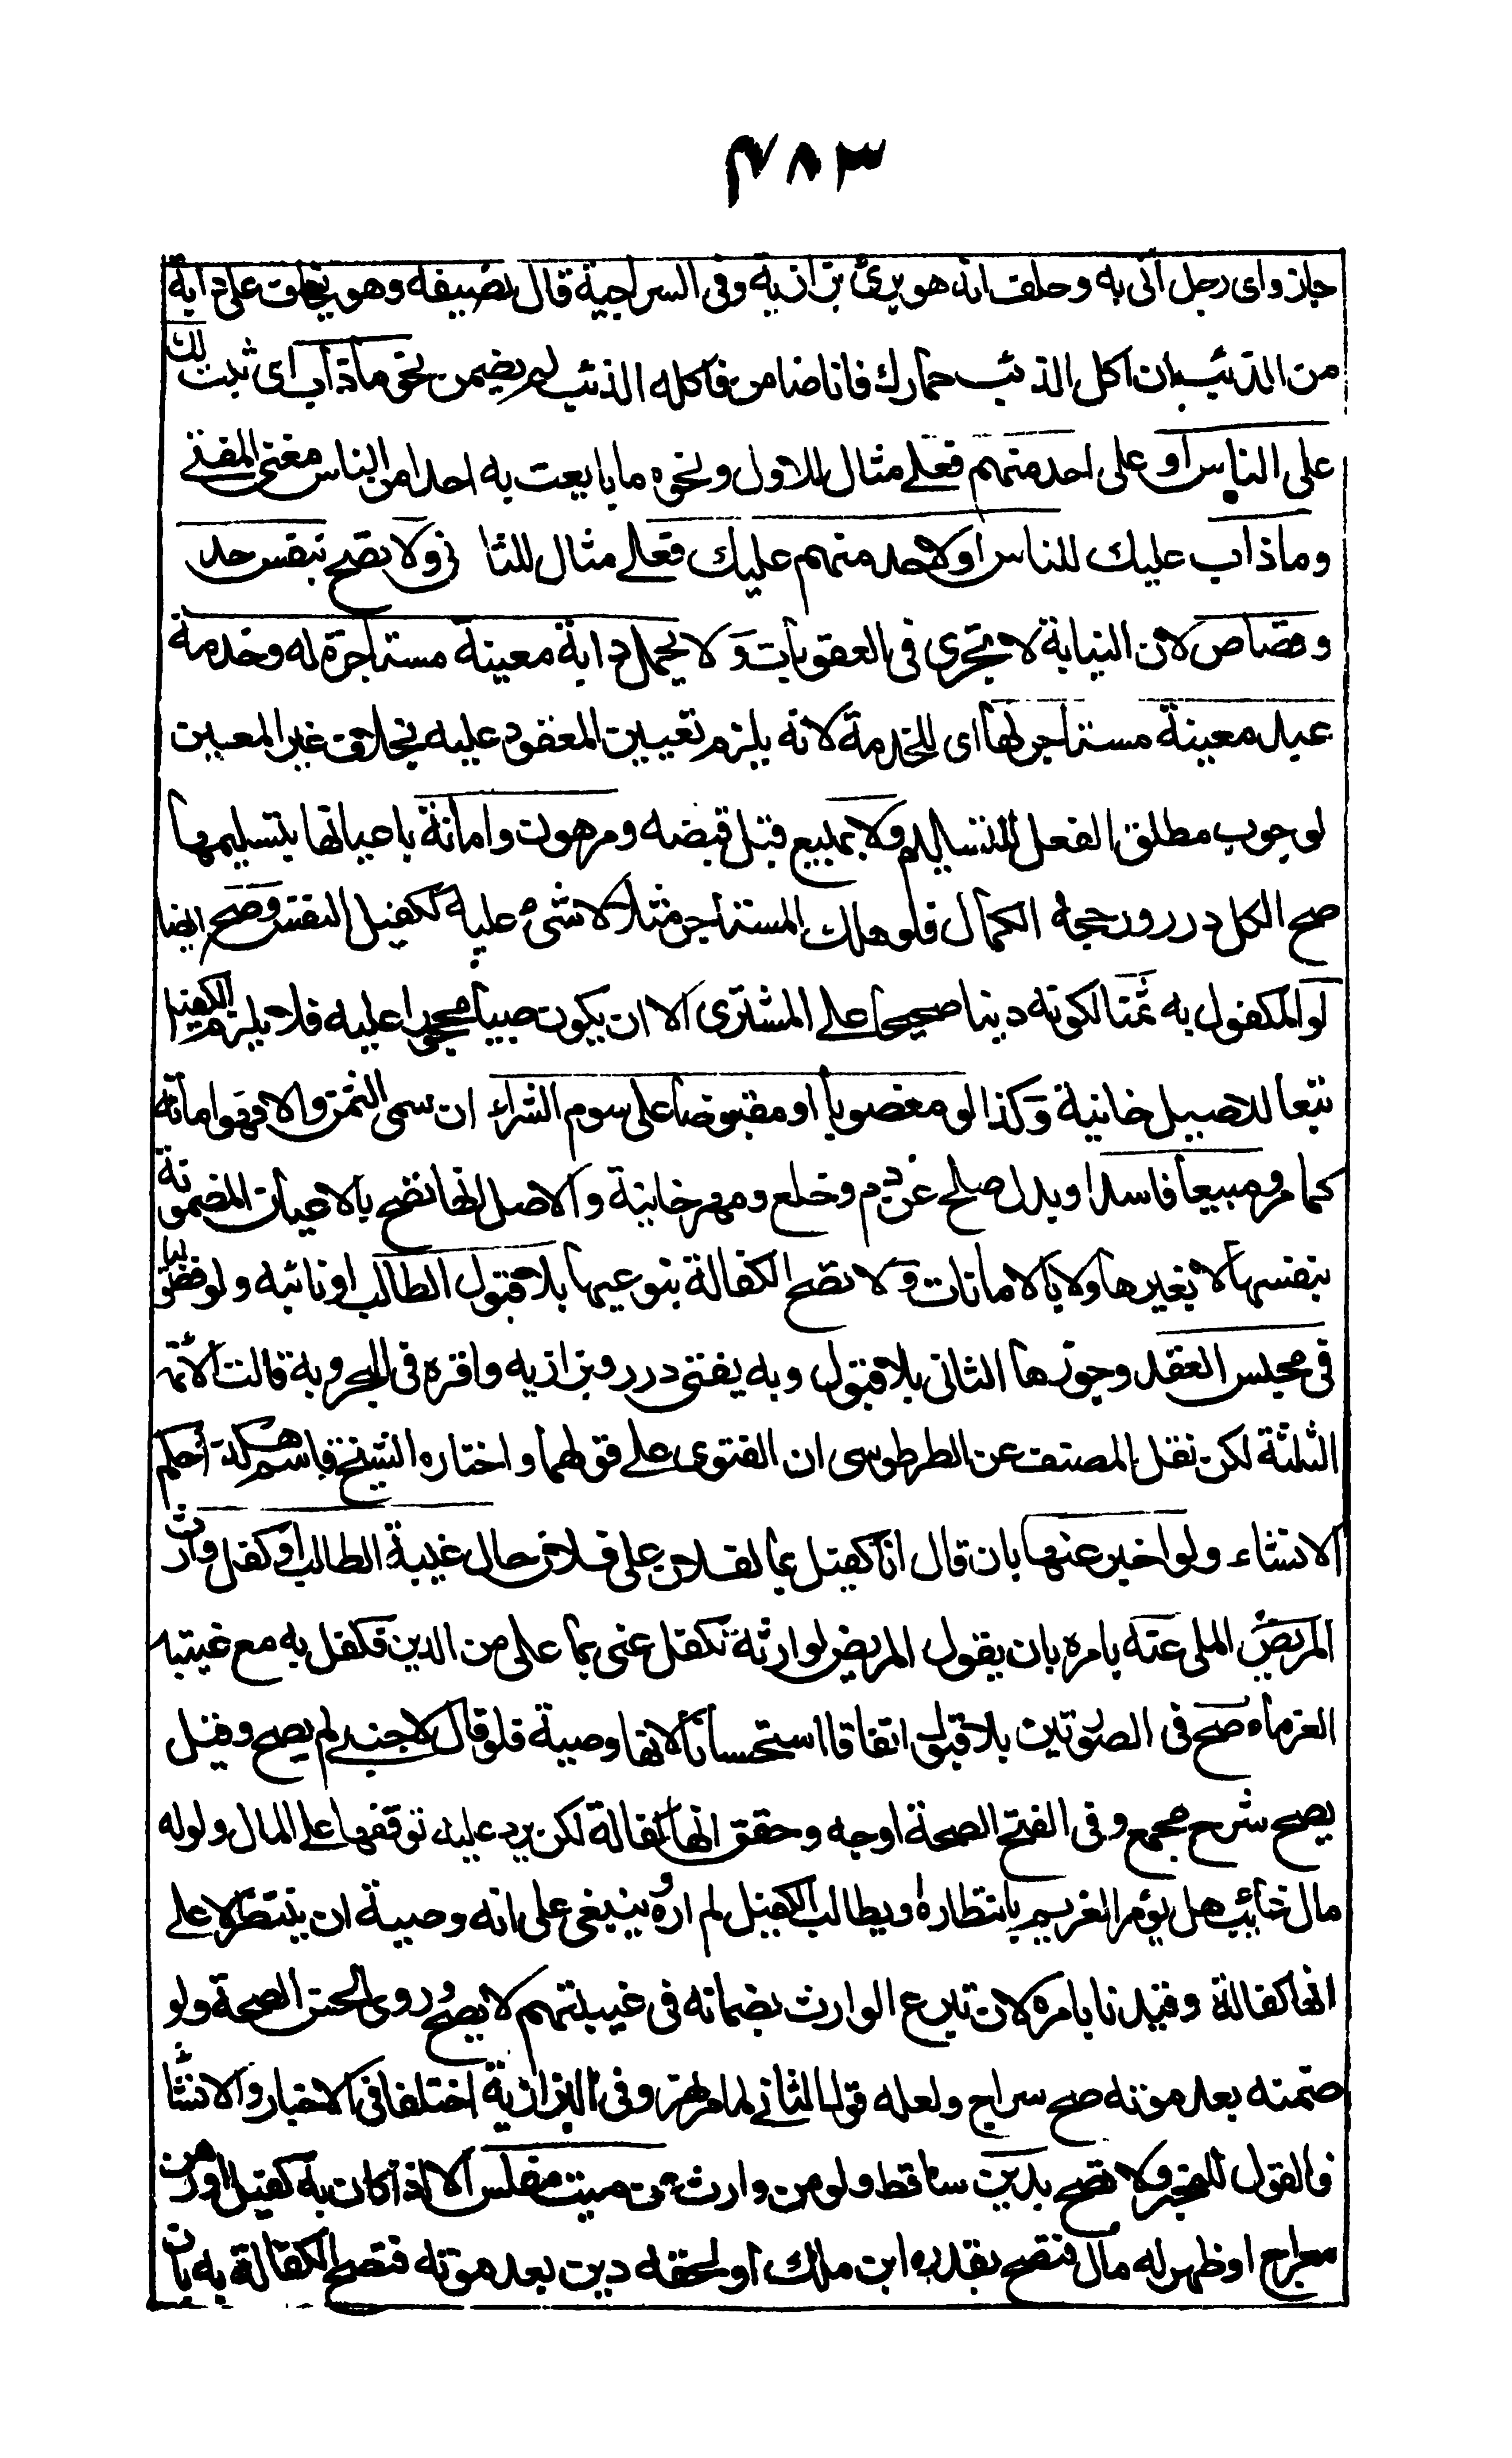 ٤٨٣
جاز واى رجل اتى به وحلف انه هو برئ بزازيه وفى السراجية قال لضيفه وهو يخاف على دابة
من الذئب ان اكل الذئب حمارك فانا ضامن فاكله الذئب لم يضمن نحو ما ذاب اى ثبت لك
على الناس او على احد منهم فعلى مثال للاول ونحوه ما بايعت به احدا من الناس مغنى المفتى
وما ذاب عليك للناس او لاحد منهم عليك فعلى مثال للثا نى ولا تصح بنفس حد
وقصاص لان النيابة لا تجرى فى العقوبات ولا يحمل دابة معينة مستاجرة له وخدمة
عبد معينة مستاجر لها اى للخدمة لانه يلزم تغيير المعقود عليه بخلاف غير المعين
لوجوب مطلق الفعل للتسليم ولا بمبيع قبل قبضه ومرهون وامانة باعيانها بتسليمها
صح الكل درر ورجحه الكمال فلو هلك المستاجر مثلا لا شئ عليه ككفيل النفس وصح ايضا
لو المكفول به ثمنا لكونه دينا صحيحا على المشترى الا ان يكون صبيا محجورا عليه فلا يلزم الكفيل
تبعا للاصيل خانية وكذا لو مغصوبا او مقبوضا على سوم الشراء ان سمى الثمن والا فهو امانة
كما مر ومبيعا فاسدا وبدل صلح عن دم وخلع ومهر خانية والاصل انها تصح بالاعيان المضمونة
بنفسها لا بغيرها ولا بالامانات ولا تصح الكفالة بنوعيها بلا قبول الطالب او نائبه ولو فضوليا
فى مجلس العقد وجوزها الثانى بلا قبول وبه يفتى درر وبزازيه واقره فى البحر وبة قالت الائمة
الثلثة لكن نقل المصنف عن الطرطوسى ان الفتوى على قولهما واختاره الشيخ قاسم هذا حكم
الانشاء ولو اخبر عنها بان قال انا كفيل بما لفلان على فلان حال غيبة الطالب او كفل وارث
المريض الملى عنه بامره بان يقول المريض لوارثة تكفل عنى بما على من الدين فكفل به مع غيتبه
الغرماء صح فى الصورتين بلا قبول اتفاقا استحسانا لانها وصية فلو قال لاجنبى لم يصح وقيل
يصح شرح مجمع وفى الفتح الصحة اوجه وحقق انها كفالة لكن يرد عليه توقفها على المال ولو له
مال غائب هل يؤمر الغريم بانتظاره او يطالب الكفيل لم اره وينبغى على انه وصية ان ينتظر لا على
انها كفالة وقيدنا بامره لان تبرع الوارث بضمانه فى غيبتهم لا يصح وروى الحسن الصحة ولو
ضمنه بعد موته صح سراج ولعله قول الثانى لما مر نهر وفى البزازية اختلفا فى الاخبار والانشا
فالقول للمخبر ولا تصح بدين ساقط ولو من وارث عن ميت مفلس الا اذا كان به كفيل او رهن
معراج او ظهر له مال فتصح بقدره ابن ملك او لحقه دين بعد موته فتصح الكفالة به بان